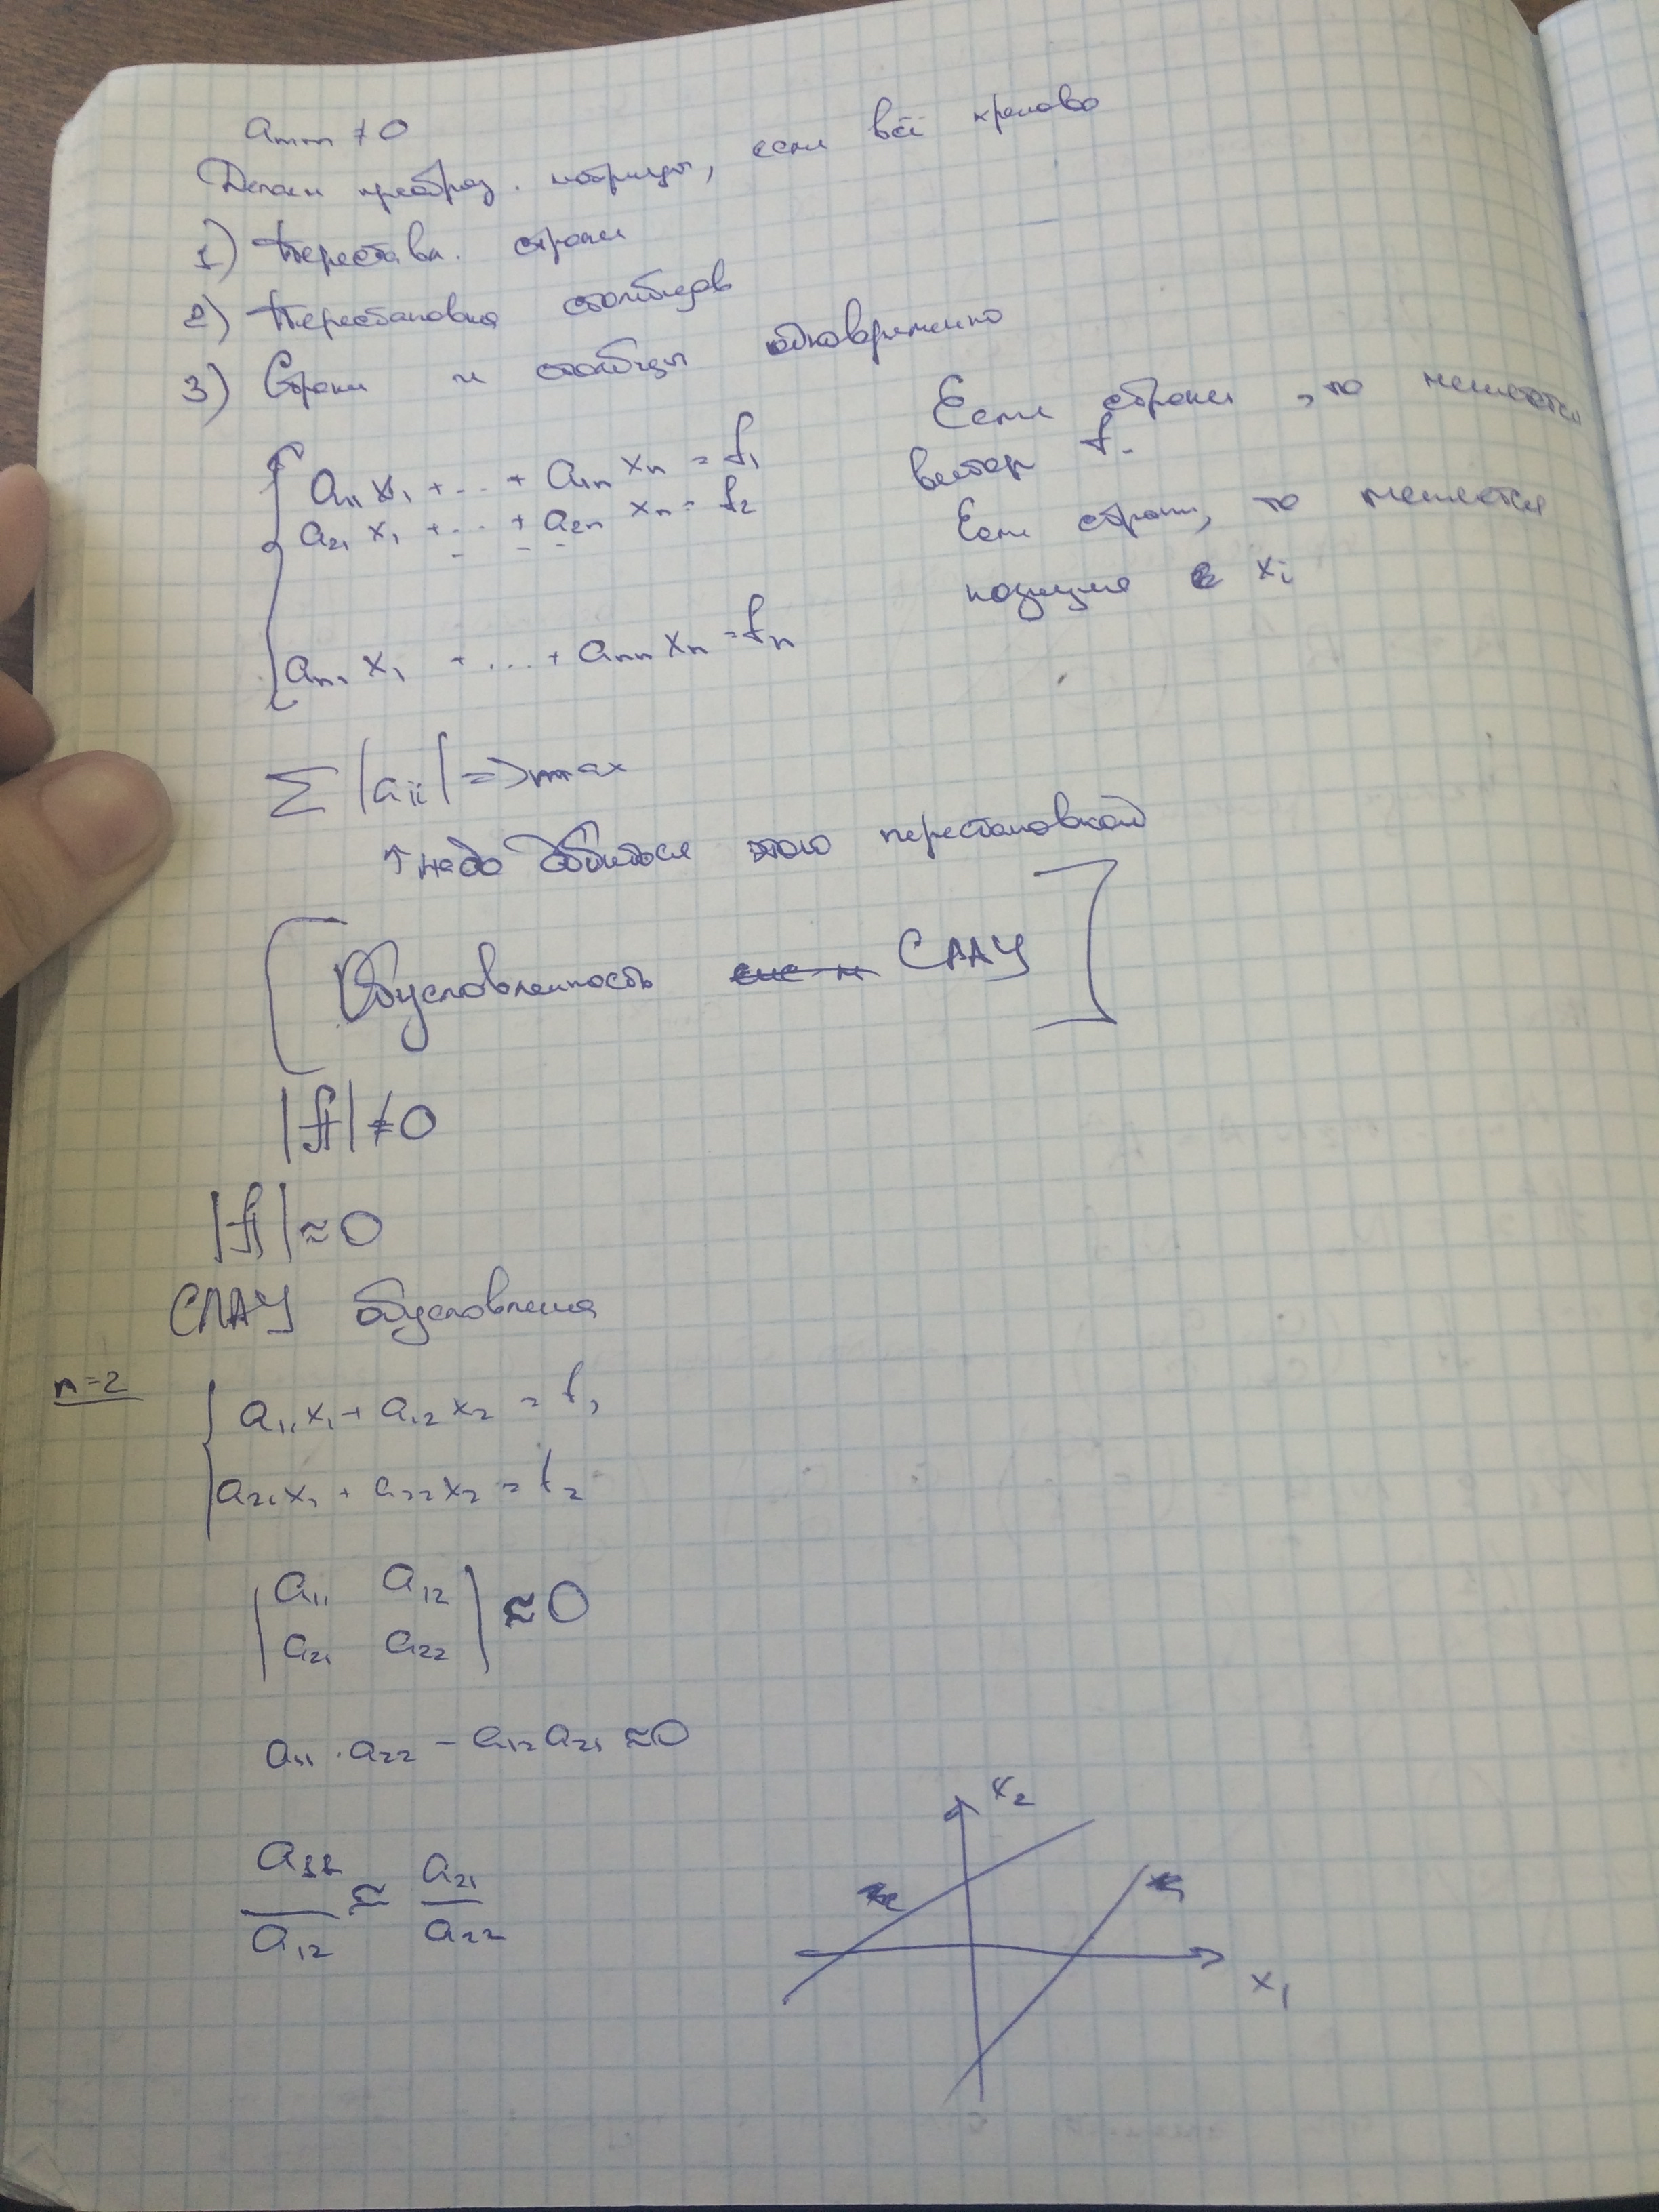 a_mm ≠ 0
Делаем преобраз. матрицы, если всё хреново
1) Перестав. строки
2) Перестановка столбцов
3) Строки и столбцы одновременно
a₁₁ x₁ + ... + a₁ₙ xₙ = f₁
a₂₁ x₁ + ... + a₂ₙ xₙ = f₂
- - -
aₙ₁ x₁ + ... + aₙₙ xₙ = fₙ
Если строки, то меняется
вектор f.
Если строки, то меняется
позиция x_i
Σ |a_ii| => max
↑ надо добиться этого перестановкой
[Обусловленность СЛАУ]
|A| ≠ 0
|A| ≈ 0
СЛАУ обусловлена
n=2
a₁₁x₁ + a₁₂x₂ = f₁
a₂₁x₁ + a₂₂x₂ = f₂
|a₁₁ a₁₂|
|a₂₁ a₂₂| ≈ 0
a₁₁ · a₂₂ - a₁₂a₂₁ ≈ 0
a₁₁/a₁₂ ≈ a₂₁/a₂₂
x₂
x₁